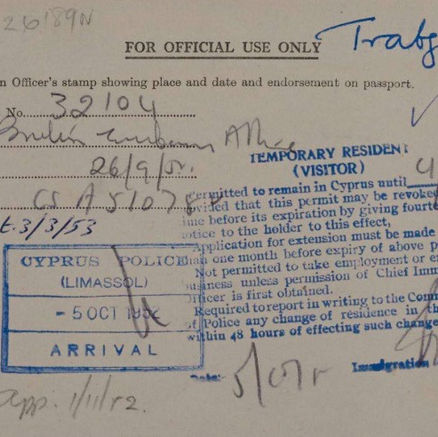 26189N
FOR OFFICIAL USE ONLY
n Officer's stamp showing place and date and endorsement on passport.
No. 32104
26/9/51.
CS A 510784
t. 3/3/53
TEMPORARY RESIDENT
(VISITOR)
Permitted to remain in Cyprus until 4
vided that this permit may be revoke
ime before its expiration by giving fourt
notice to the holder to this effect,
Application for extension must be made
han one month before expiry of above p
Not permitted to take employment or e
usiness unless permission of Chief Imm
Officer is first obtained.
Required to report in writing to the Com
of Police any change of residence in th
within 48 hours of effecting such change
Immigration
CYPRUS POLICE
(LIMASSOL)
- 5 OCT 195
ARRIVAL
Date:
app. 1/11/52.